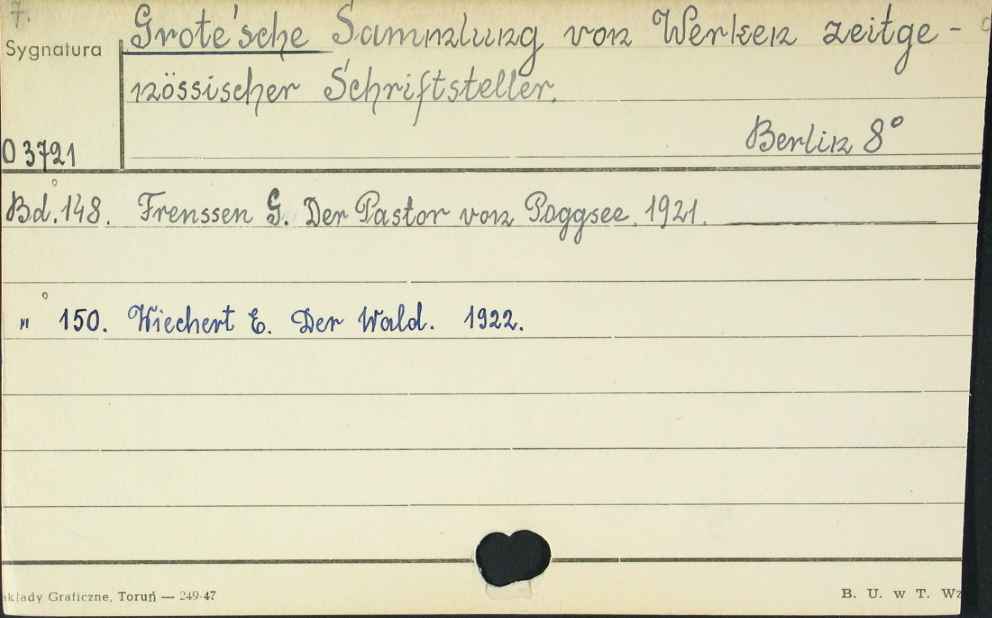 7.
Grote'sche Sammlung von Werken zeitge-
Sygnatura
nössischer Schriftsteller.
Berlin 8°
0 3721
Bd. 148. Frenssen G. Der Pastor von Poggsee. 1921.
„ 150. Wiechert E. Der Wald. 1922.
akłady Graficzne, Toruń — 249-47
B. U. w T. Wz